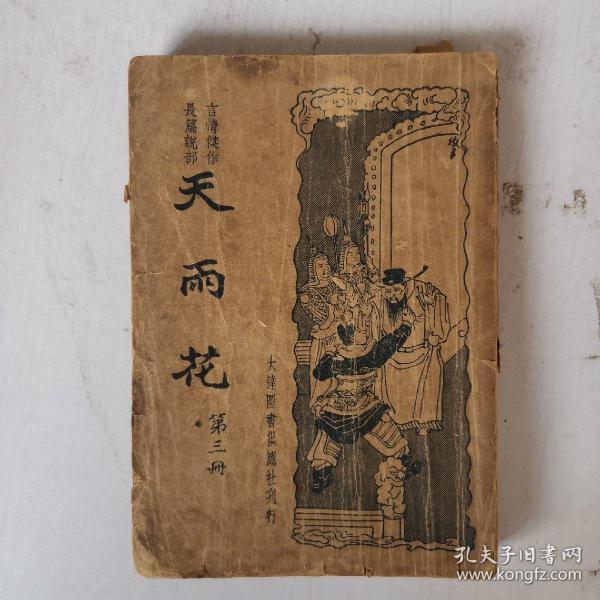 言情傑作
長篇說部
天雨花
第三冊
大達圖書供應社刊行
孔夫子旧书网
www.kongfz.com